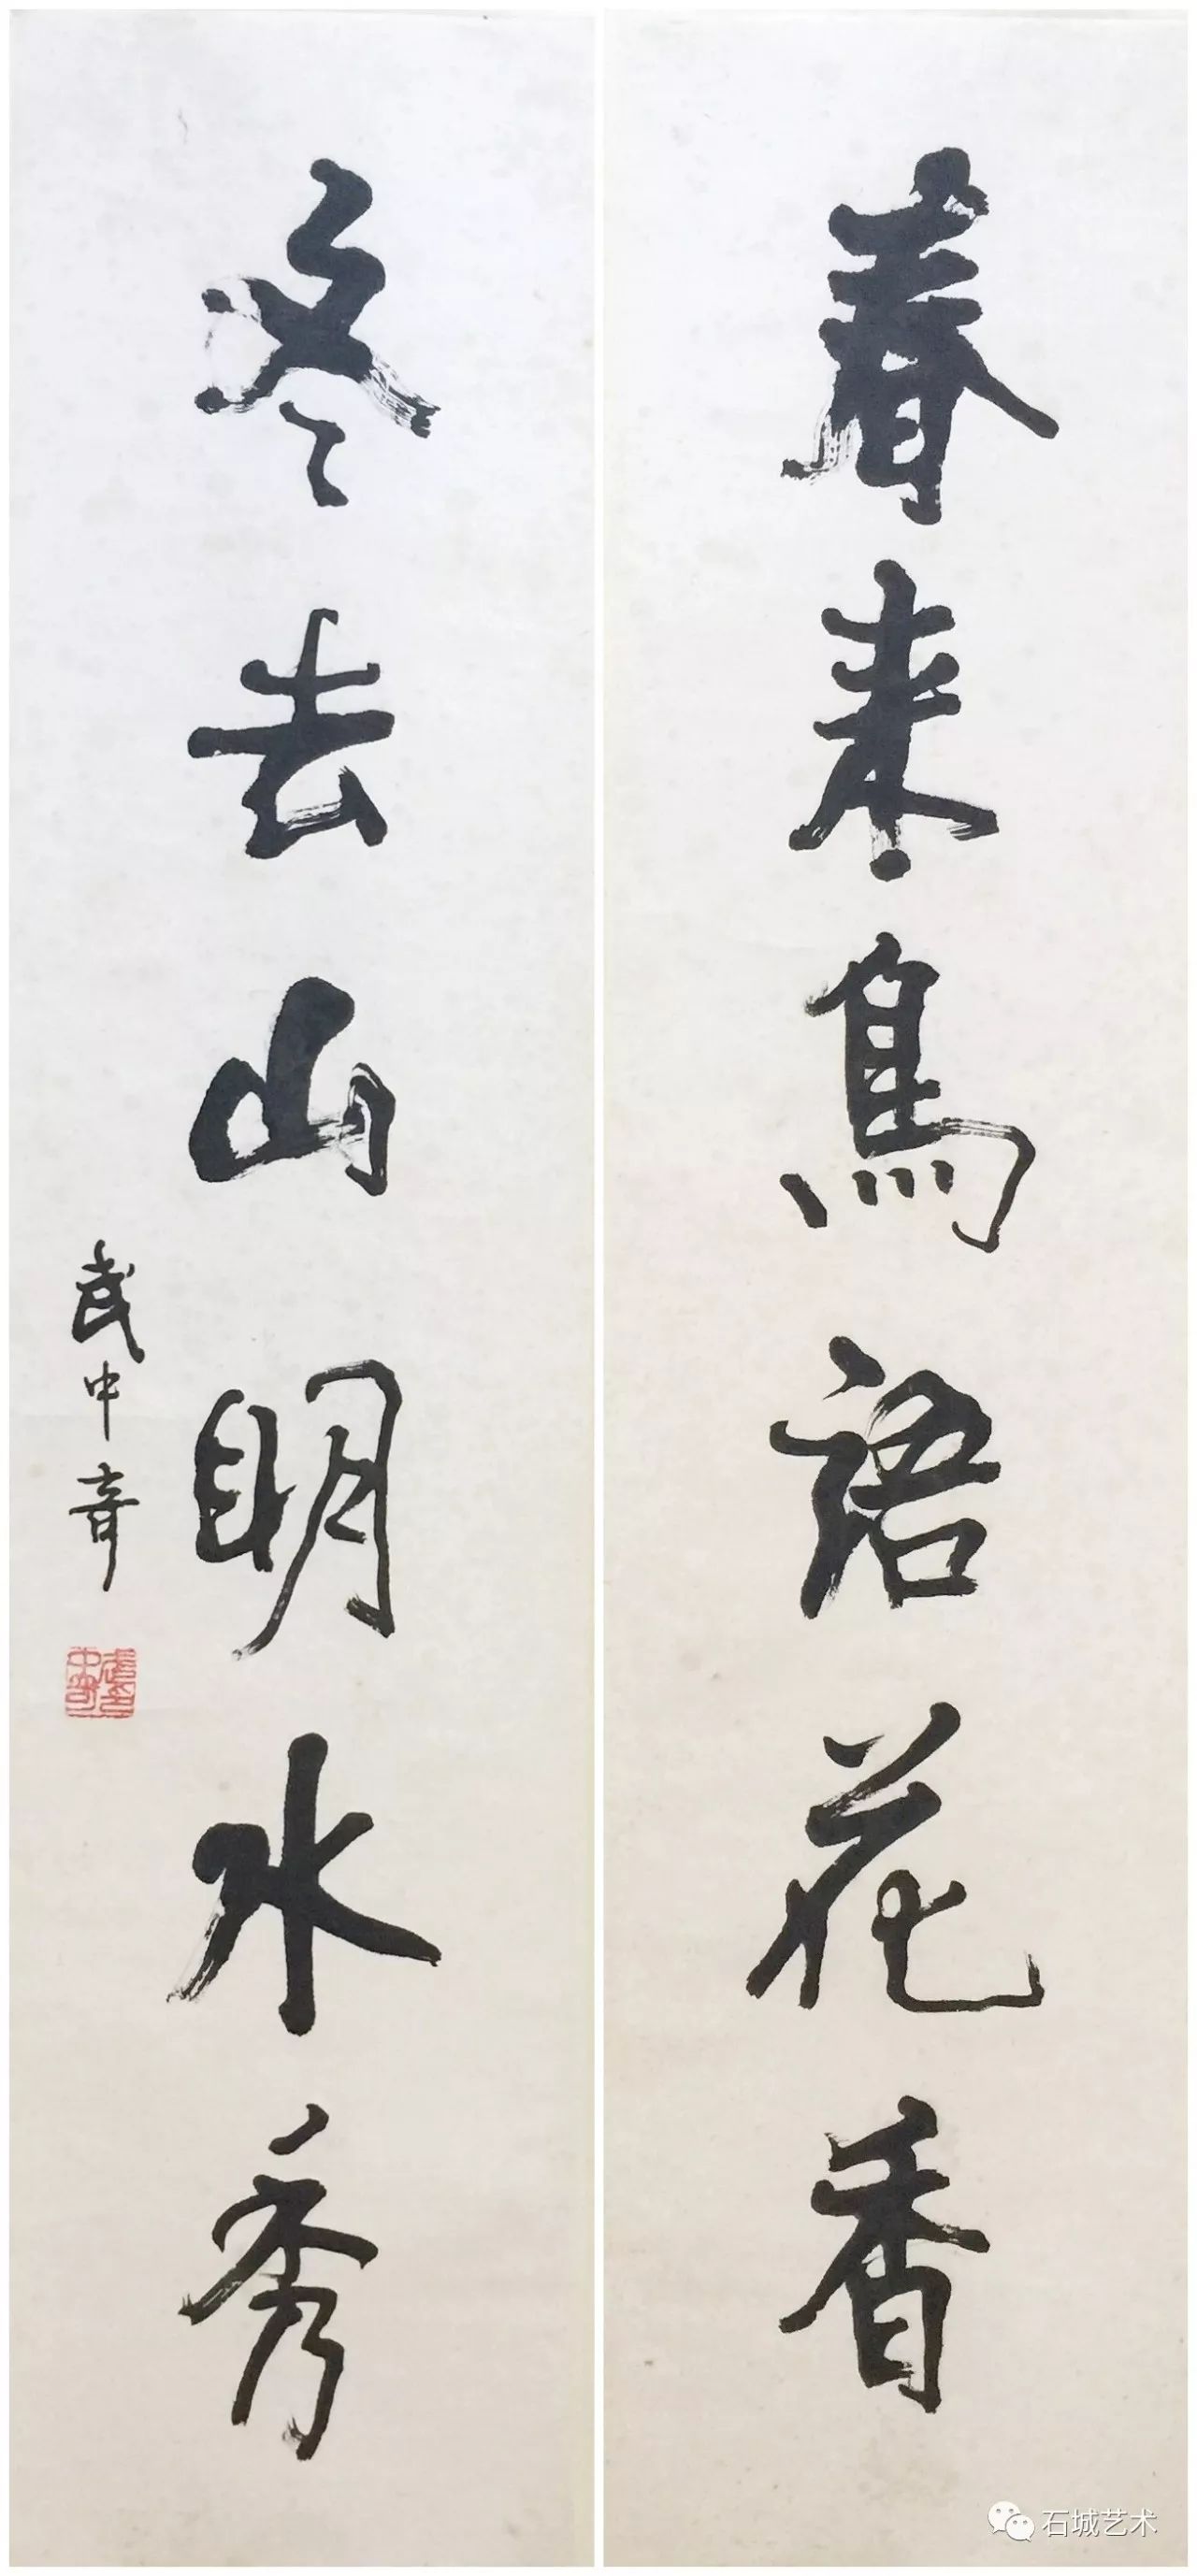 春来鳥語花香
冬去山明水秀
武中奇
石城艺术